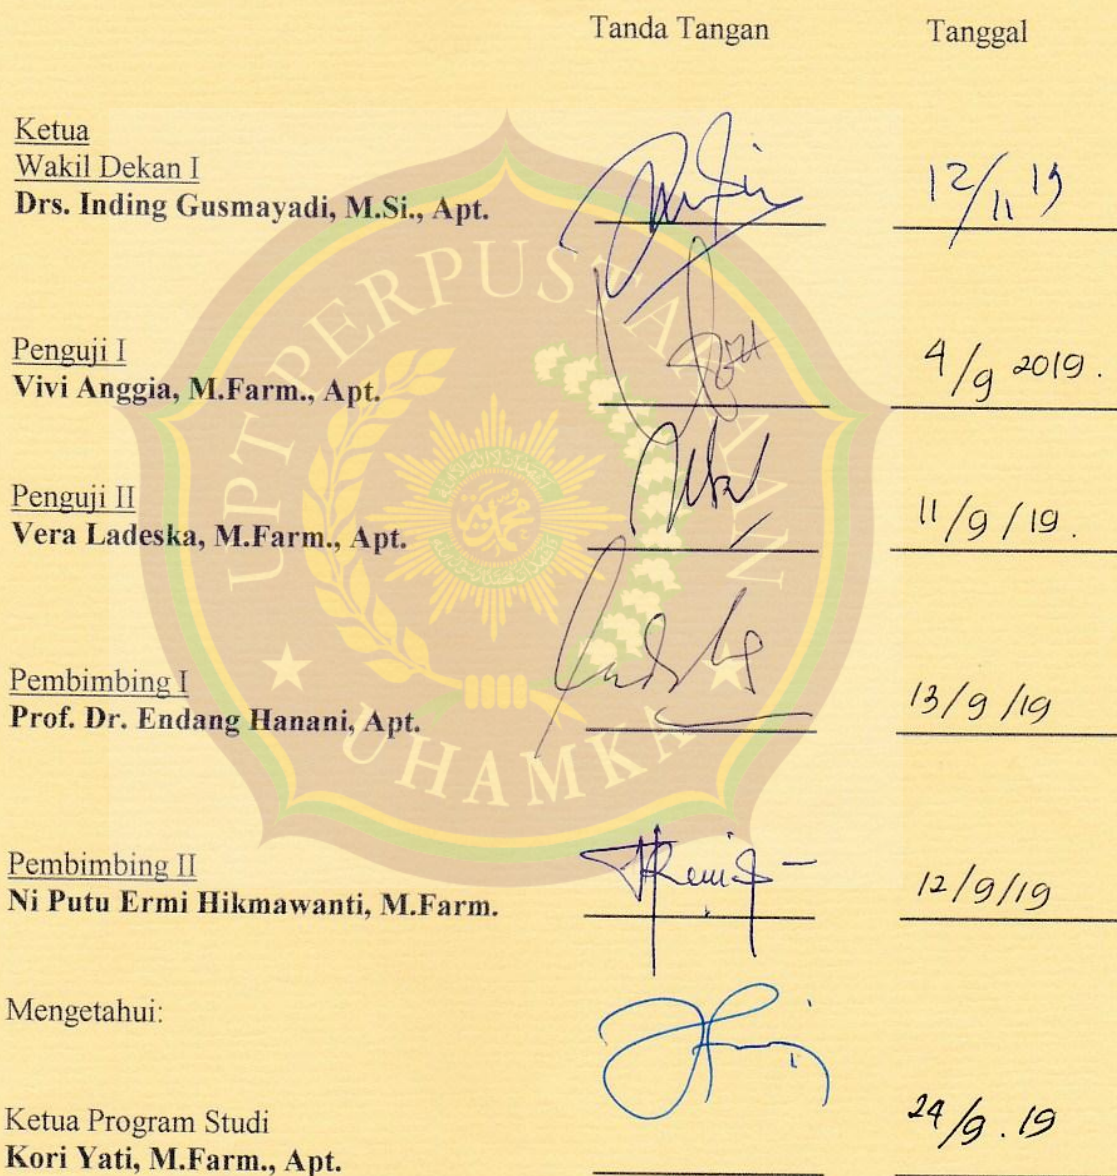 Tanda Tangan Tanggal
Ketua
Wakil Dekan I
Drs. Inding Gusmayadi, M.Si., Apt. 12/11 19
Penguji I
Vivi Anggia, M.Farm., Apt. 4/9 2019.
Penguji II
Vera Ladeska, M.Farm., Apt. 11/9/19.
Pembimbing I
Prof. Dr. Endang Hanani, Apt. 13/9/19
Pembimbing II
Ni Putu Ermi Hikmawanti, M.Farm. 12/9/19
Mengetahui:
Ketua Program Studi
Kori Yati, M.Farm., Apt. 24/9.19
UPT PERPUSTAKAAN
UHAMKA